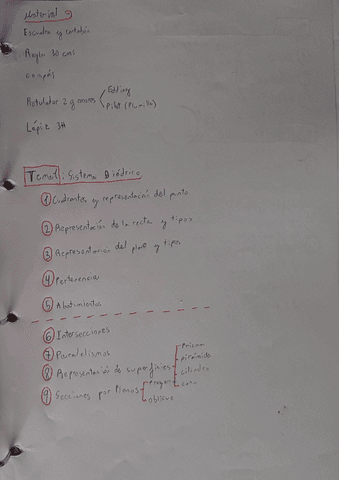 Material
Escuadra y cartabón
Regla 30 cms
Compás
Rotulador 2 grosores
Edding
Pilot (Plumilla)
Lápiz 3H
Tema 1: Sistema Diédrico
1 Cuadrantes y representación del punto
2 Representación de la recta y tipos
3 Representación del plano y tipos
4 Pertenencia
5 Abatimientos
6 Intersecciones
7 Paralelismos
8 Representación de superficies
Prisma
pirámide
cilindro
cono
9 Secciones por Planos
oblicuo